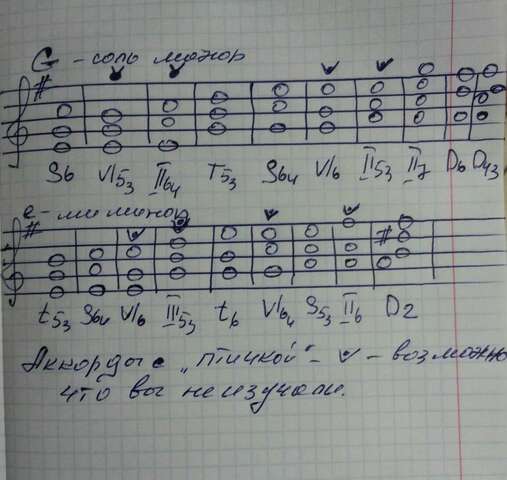 G - соль мажор
S6 VI53 II64 T53 S64 VI6 II53 II7 D6 D43
e - ми минор
t53 S64 VI6 III53 t6 VI64 S53 II6 D2
Аккорды с „птичкой" - v - возможно
что вы не изучали.